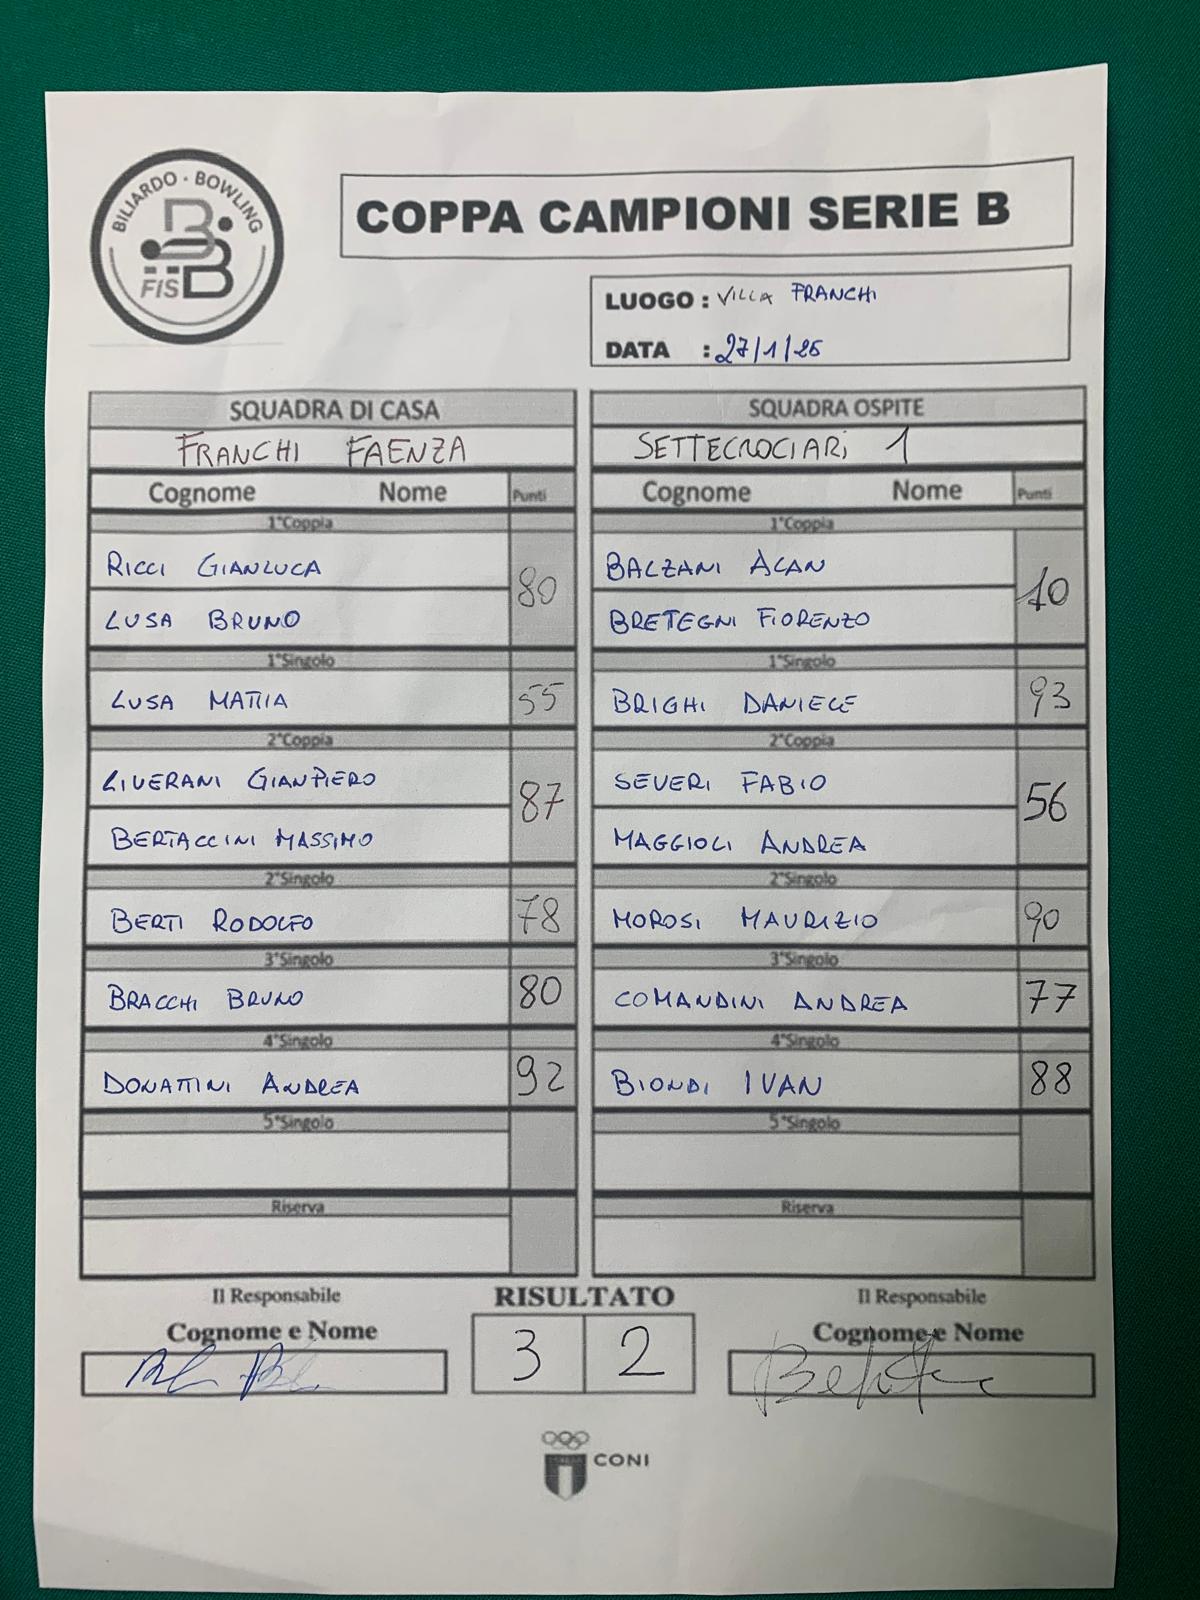 BILIARDO · BOWLING
FISBB
COPPA CAMPIONI SERIE B
LUOGO : VILLA FRANCHI
DATA : 27/1/26
SQUADRA DI CASA
FRANCHI FAENZA
Cognome Nome Punti
1°Coppia
RICCI GIANLUCA
80
LUSA BRUNO
1°Singolo
LUSA MATTIA 55
2°Coppia
LIVERANI GIANPIERO
87
BERTACCINI MASSIMO
2°Singolo
BERTI RODOLFO 78
3°Singolo
BRACCHI BRUNO 80
4°Singolo
DONATTINI ANDREA 92
5°Singolo
Riserva
SQUADRA OSPITE
SETTECROCIARI 1
Cognome Nome Punti
1°Coppia
BALZANI ALAN
10
BRETEGNI FIORENZO
1°Singolo
BRIGHI DANIELE 93
2°Coppia
SEVERI FABIO
56
MAGGIOLI ANDREA
2°Singolo
MOROSI MAURIZIO 90
3°Singolo
COMANDINI ANDREA 77
4°Singolo
BIONDI IVAN 88
5°Singolo
Riserva
Il Responsabile
Cognome e Nome
RISULTATO
3 2
Il Responsabile
Cognome e Nome
CONI